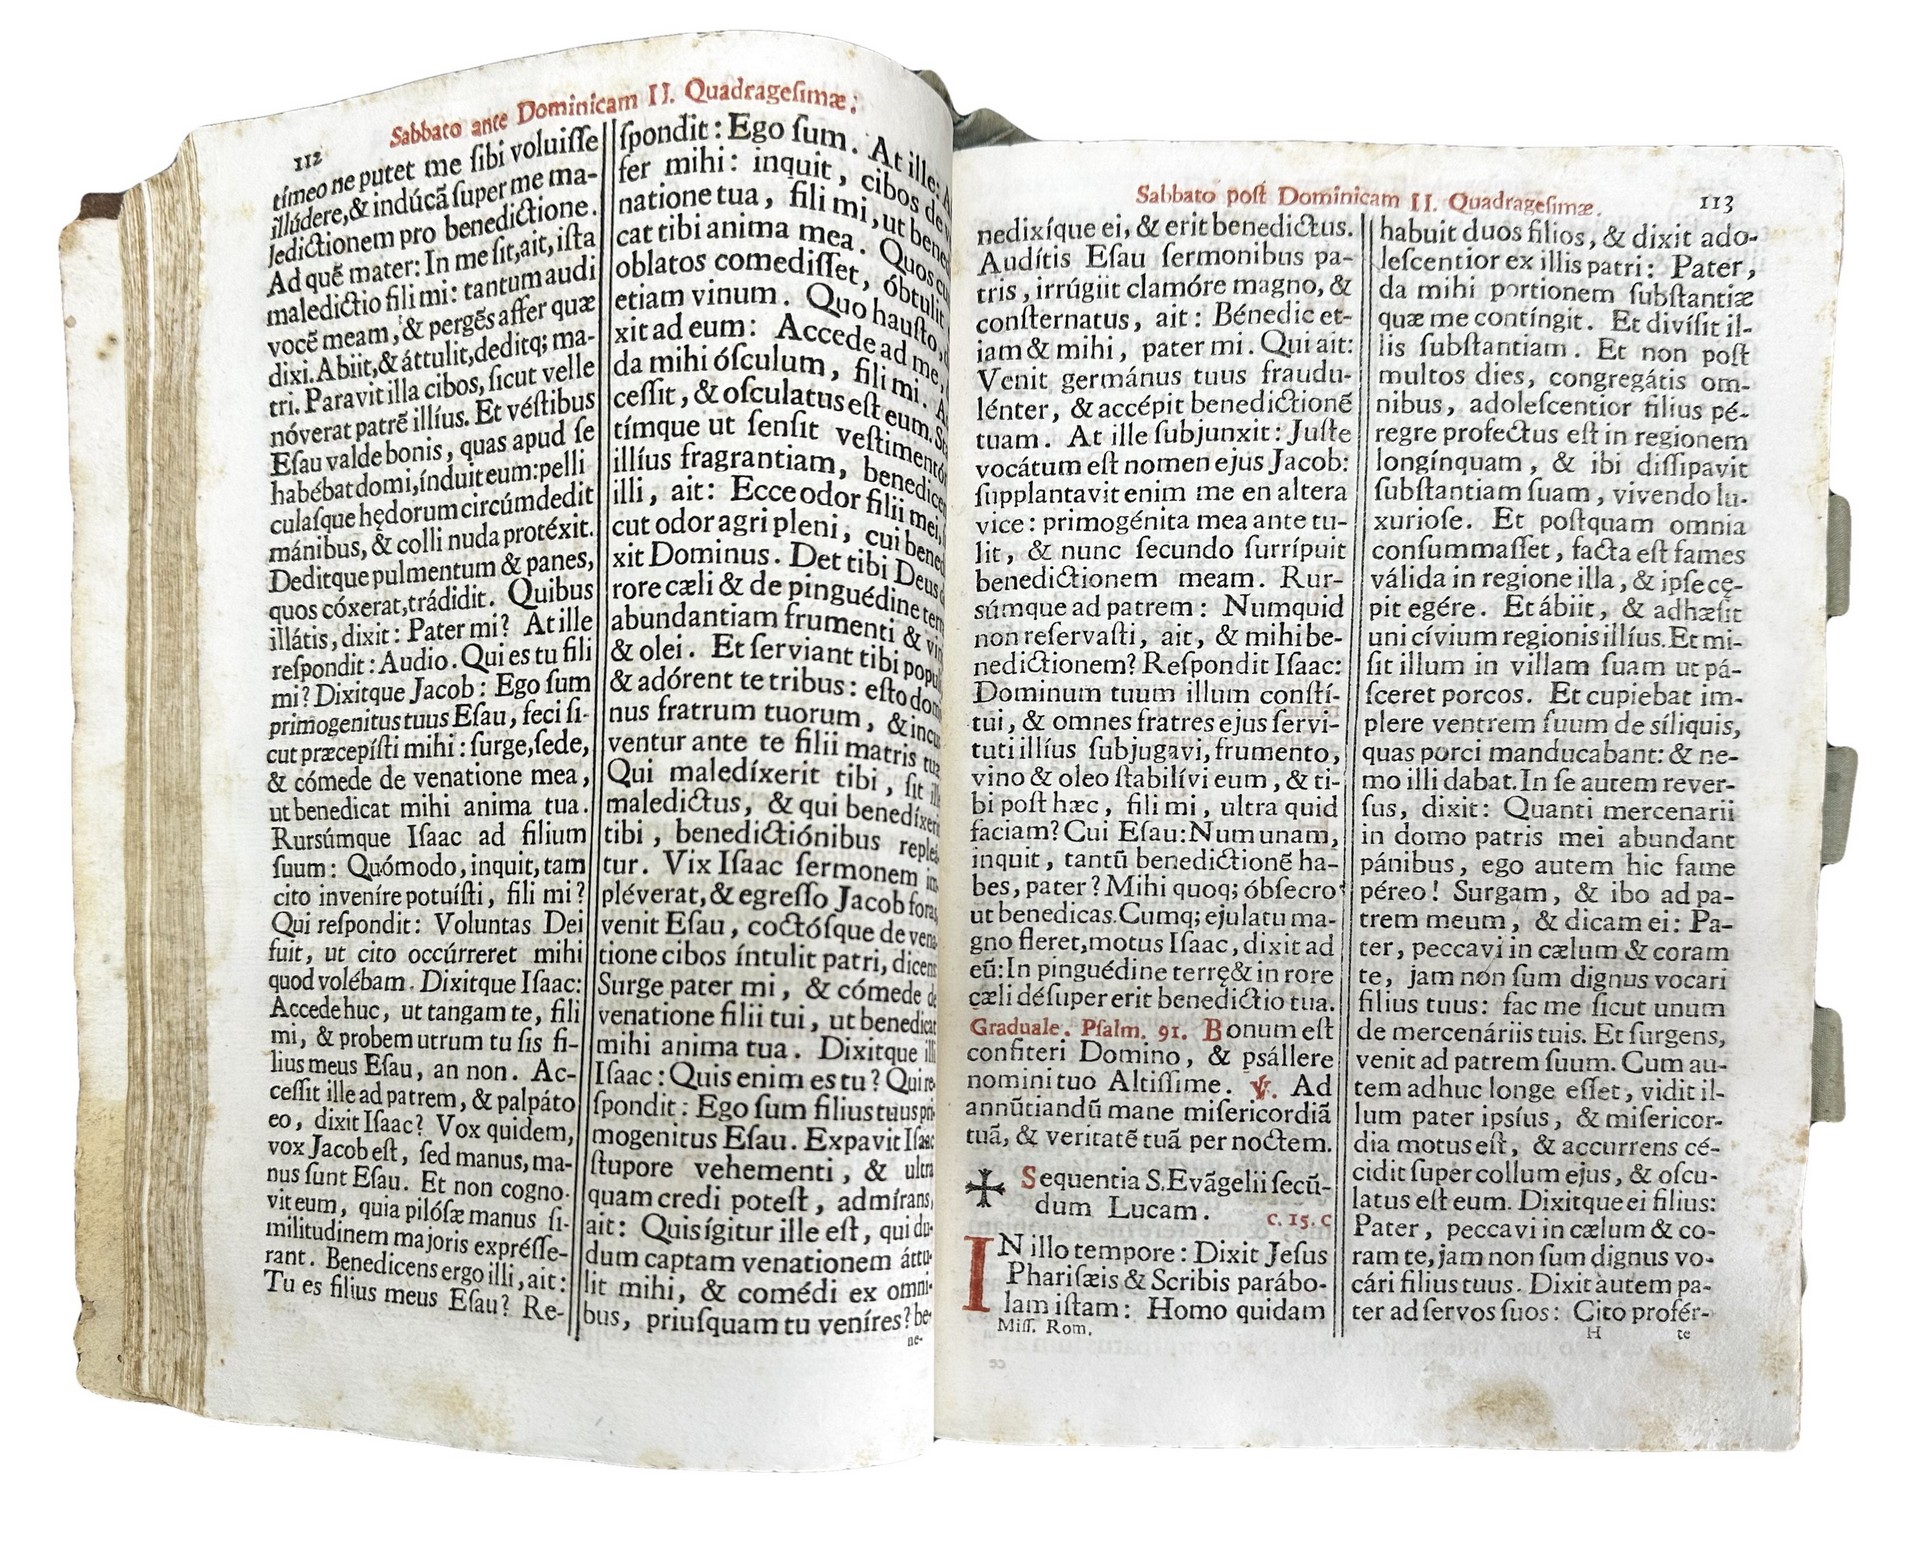 112
Sabbato ante Dominicam II. Quadragesimæ:
tímeo ne putet me ſibi voluiſſe
illúdere, & indúcã ſuper me ma-
ledictionem pro benedictione.
Ad quẽ mater: In me ſit, ait, iſta
maledictio fili mi: tantum audi
vocẽ meam, & pergẽs affer quæ
dixi. Abiit, & áttulit, deditq; ma-
tri. Paravit illa cibos, ſicut velle
nóverat patrẽ illíus. Et véſtibus
Eſau valde bonis, quas apud ſe
habébat domi, índuit eum: pelli
culaſque hędorum circúmdedit
mánibus, & colli nuda protéxit.
Deditque pulmentum & panes,
quos cóxerat, trádidit. Quibus
illátis, dixit: Pater mi? At ille
reſpondit: Audio. Qui es tu fili
mi? Dixitque Jacob: Ego ſum
primogenitus tuus Eſau, feci ſi-
cut præcepíſti mihi: ſurge, ſede,
& cómede de venatione mea,
ut benedicat mihi anima tua.
Rursúmque Iſaac ad filium
ſuum: Quómodo, inquit, tam
cito inveníre potuíſti, fili mi?
Qui reſpondit: Voluntas Dei
fuit, ut cito occúrreret mihi
quod volébam. Dixitque Iſaac:
Accede huc, ut tangam te, fili
mi, & probem utrum tu ſis fi-
lius meus Eſau, an non. Ac-
ceſſit ille ad patrem, & palpáto
eo, dixit Iſaac? Vox quidem,
vox Jacob eſt, ſed manus, ma-
nus ſunt Eſau. Et non cogno-
vit eum, quia pilóſæ manus ſi-
militudinem majoris expréſſe-
rant. Benedicens ergo illi, ait:
Tu es filius meus Eſau? Re-
ſpondit: Ego ſum. At ille:
fer mihi: inquit, cibos de
natione tua, fili mi, ut
cat tibi anima mea. Quos
oblatos comediſſet, óbtulit
etiam vinum. Quo hauſto,
xit ad eum: Accede ad me,
da mihi óſculum, fili mi.
ceſſit, & oſculatus eſt eum.
tímque ut ſenſit
illíus fragrantiam,
illi, ait: Ecce odor filii mei,
cut odor agri pleni, cui
xit Dominus. Det tibi Deus
rore cæli & de pinguédine
abundantiam frumenti &
& olei. Et ſerviant tibi
& adórent te tribus: eſto
nus fratrum tuorum, &
ventur ante te filii matris
Qui maledíxerit tibi, ſit
maledictus, & qui
tibi, benedictiónibus
tur. Vix Iſaac ſermonem
pléverat, & egreſſo Jacob
venit Eſau, coctóſque de
tione cibos íntulit patri,
Surge pater mi, & cómede
venatione filii tui, ut
mihi anima tua. Dixitque
Iſaac: Quis enim es tu? Qui re-
ſpondit: Ego ſum filius tuus pri-
mogenitus Eſau. Expavit
ſtupore vehementi, & ultra
quam credi poteſt, admírans,
ait: Quis ígitur ille eſt, qui du-
dum captam venationem áttu-
lit mihi, & comédi ex omni-
bus, priuſquam tu veníres? be-
ne-
Sabbato poſt Dominicam II. Quadrageſimæ.
113
nedixíque ei, & erit benedictus.
Audítis Eſau ſermonibus pa-
tris, irrúgiit clamóre magno, &
conſternatus, ait: Bénedic et-
iam & mihi, pater mi. Qui ait:
Venit germánus tuus fraudu-
lénter, & accépit benedictionẽ
tuam. At ille ſubjunxit: Juſte
vocátum eſt nomen ejus Jacob:
ſupplantavit enim me en altera
vice: primogénita mea ante tu-
lit, & nunc ſecundo ſurrípuit
benedictionem meam. Rur-
súmque ad patrem: Numquid
non reſervaſti, ait, & mihi be-
nedictionem? Reſpondit Iſaac:
Dominum tuum illum conſtí-
tui, & omnes fratres ejus ſervi-
tuti illíus ſubjugavi, frumento,
vino & oleo ſtabilívi eum, & ti-
bi poſt hæc, fili mi, ultra quid
faciam? Cui Eſau: Num unam,
inquit, tantũ benedictionẽ ha-
bes, pater? Mihi quoq; óbſecro
ut benedicas. Cumq; ejulatu ma-
gno fleret, motus Iſaac, dixit ad
eũ: In pinguédine terrę & in rore
cæli déſuper erit benedictio tua.
Graduale. Pſalm. 91. Bonum eſt
confiteri Domino, & psállere
nomini tuo Altiſſime. ℣. Ad
annũtiandũ mane miſericordiã
tuã, & veritatẽ tuã per noctem.
✠ Sequentia S. Evãgelii ſecũ-
dum Lucam. c. 15. c
IN illo tempore: Dixit Jeſus
Phariſæis & Scribis parábo-
lam iſtam: Homo quidam
Miſſ. Rom.
habuit duos filios, & dixit ado-
leſcentior ex illis patri: Pater,
da mihi portionem ſubſtantiæ
quæ me contíngit. Et divíſit il-
lis ſubſtantiam. Et non poſt
multos dies, congregátis om-
nibus, adoleſcentior filius pé-
regre profectus eſt in regionem
longínquam, & ibi diſſipavit
ſubſtantiam ſuam, vivendo lu-
xurioſe. Et poſtquam omnia
conſummaſſet, facta eſt fames
válida in regione illa, & ipſe cę-
pit egére. Et ábiit, & adhæſit
uni cívium regionis illíus. Et mi-
ſit illum in villam ſuam ut pá-
ſceret porcos. Et cupiebat im-
plere ventrem ſuum de síliquis,
quas porci manducabant: & ne-
mo illi dabat. In ſe autem rever-
ſus, dixit: Quanti mercenarii
in domo patris mei abundant
pánibus, ego autem hic fame
péreo! Surgam, & ibo ad pa-
trem meum, & dicam ei: Pa-
ter, peccavi in cælum & coram
te, jam non ſum dignus vocari
filius tuus: fac me ſicut unum
de mercenáriis tuis. Et ſurgens,
venit ad patrem ſuum. Cum au-
tem adhuc longe eſſet, vidit il-
lum pater ipsíus, & miſericor-
dia motus eſt, & accurrens cé-
cidit ſuper collum ejus, & oſcu-
latus eſt eum. Dixitque ei filius:
Pater, peccavi in cælum & co-
ram te, jam non ſum dignus vo-
cári filius tuus. Dixit autem pa-
ter ad ſervos ſuos: Cito profér-
H te